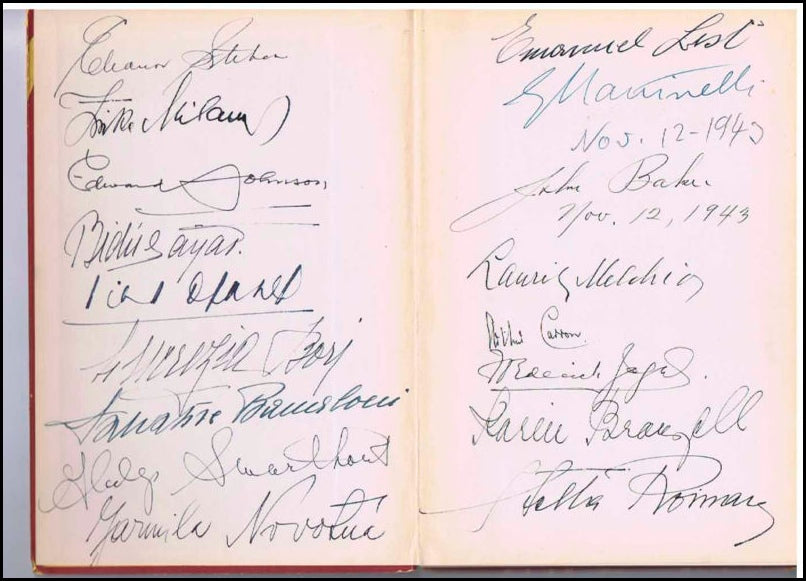 Eleanor Steber
Zinka Milanov
Edward Johnson
Bidú Sayao.
Lucrezia Bori
Salvatore Baccaloni
Gladys Swarthout
Jarmila Novotná
Emanuel List
G Martinelli
Nov. 12-1943
John Baker
Nov. 12, 1943
Lauritz Melchior
Arthur Carron
Frederick Jagel.
Karin Branzell
Stella Roman